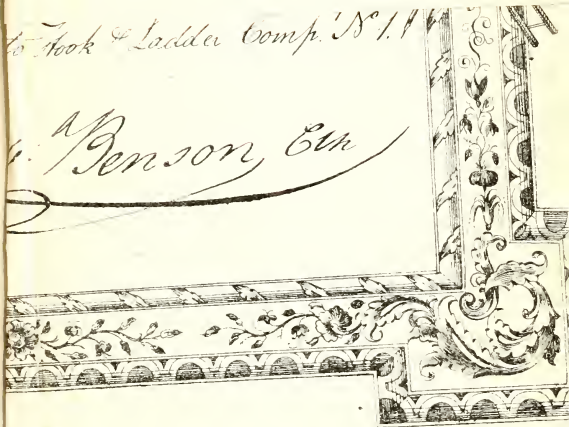 to Hook & Ladder Comp.ʸ Nº 1.
Benson, Clk